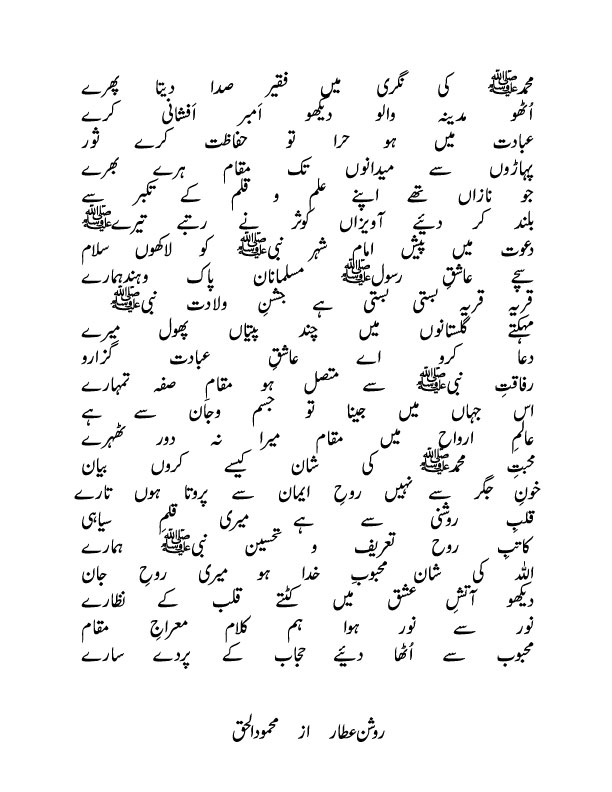 محمدﷺ کی نگری میں فقیر صدا دیتا پھرے
اُٹھو مدینہ والو دیکھو اَمبر اَفشانی کرے
عبادت میں ہو حرا تو حفاظت کرے ثور
پہاڑوں سے میدانوں تک مقام ہرے بھرے
جو نازاں تھے اپنے علم و قلم کے تکبر سے
بلند کر دیئے آویزاں کوثر نے رتبے تیرےﷺ
دعوت میں پیش امام شہر نبیﷺ کو لاکھوں سلام
سچے عاشقِ رسولﷺ مسلمانان پاک وہندہمارے
قریہ قریہ بستی بستی ہے جشنِ ولادت نبیﷺ
مہکتے گلستانوں میں چند پتیاں پھول میرے
دعا کرو اے عاشقِ عبادت گزارو
رفاقتِ نبیﷺ سے متصل ہو مقامِ صفہ تمہارے
اس جہاں میں جینا تو جسم وجَان سے ہے
عالمِ ارواح میں مقام میرا نہ دور ٹھہرے
محبتِ محمدﷺ کی شان کیسے کروں بیان
خونِ جگر سے نہیں روحِ ایمان سے پروتا ہوں تارے
قلبِ روشنی سے ہے میری قلمِ سیاہی
کاتبِ روح تعریف و تحسین نبیﷺ ہمارے
اللہ کی شان محبوبِ خدا ہو میری روحِ جان
دیکھو آتشِ عشق میں کٹتے قلب کے نظارے
نور سے نور ہوا ہم کلام معراجِ مقام
محبوب سے اُٹھا دیئے حجاب کے پردے سارے
روشن عطار از محمودالحق